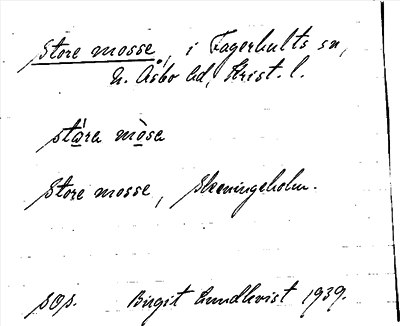 Store mosse, i Fagerhults sn,
N. Åsbo hd, Krist. l.
ståra mòsa
Store mosse, Skeningeholm.
sop. Birgit Lundkvist 1939.